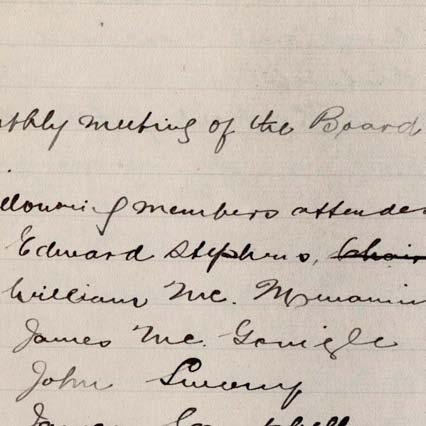 nthly meeting of the Board
llowing members attended
Edward Stephens, Chair
William Mc. Menamin
James Mc. Gonigle
John Sweeny
James Campbell